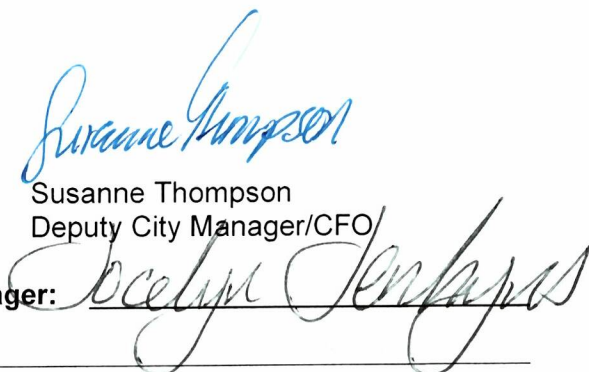 Susanne Thompson
Susanne Thompson
Deputy City Manager/CFO
ager: Jocelyn Jenkyns